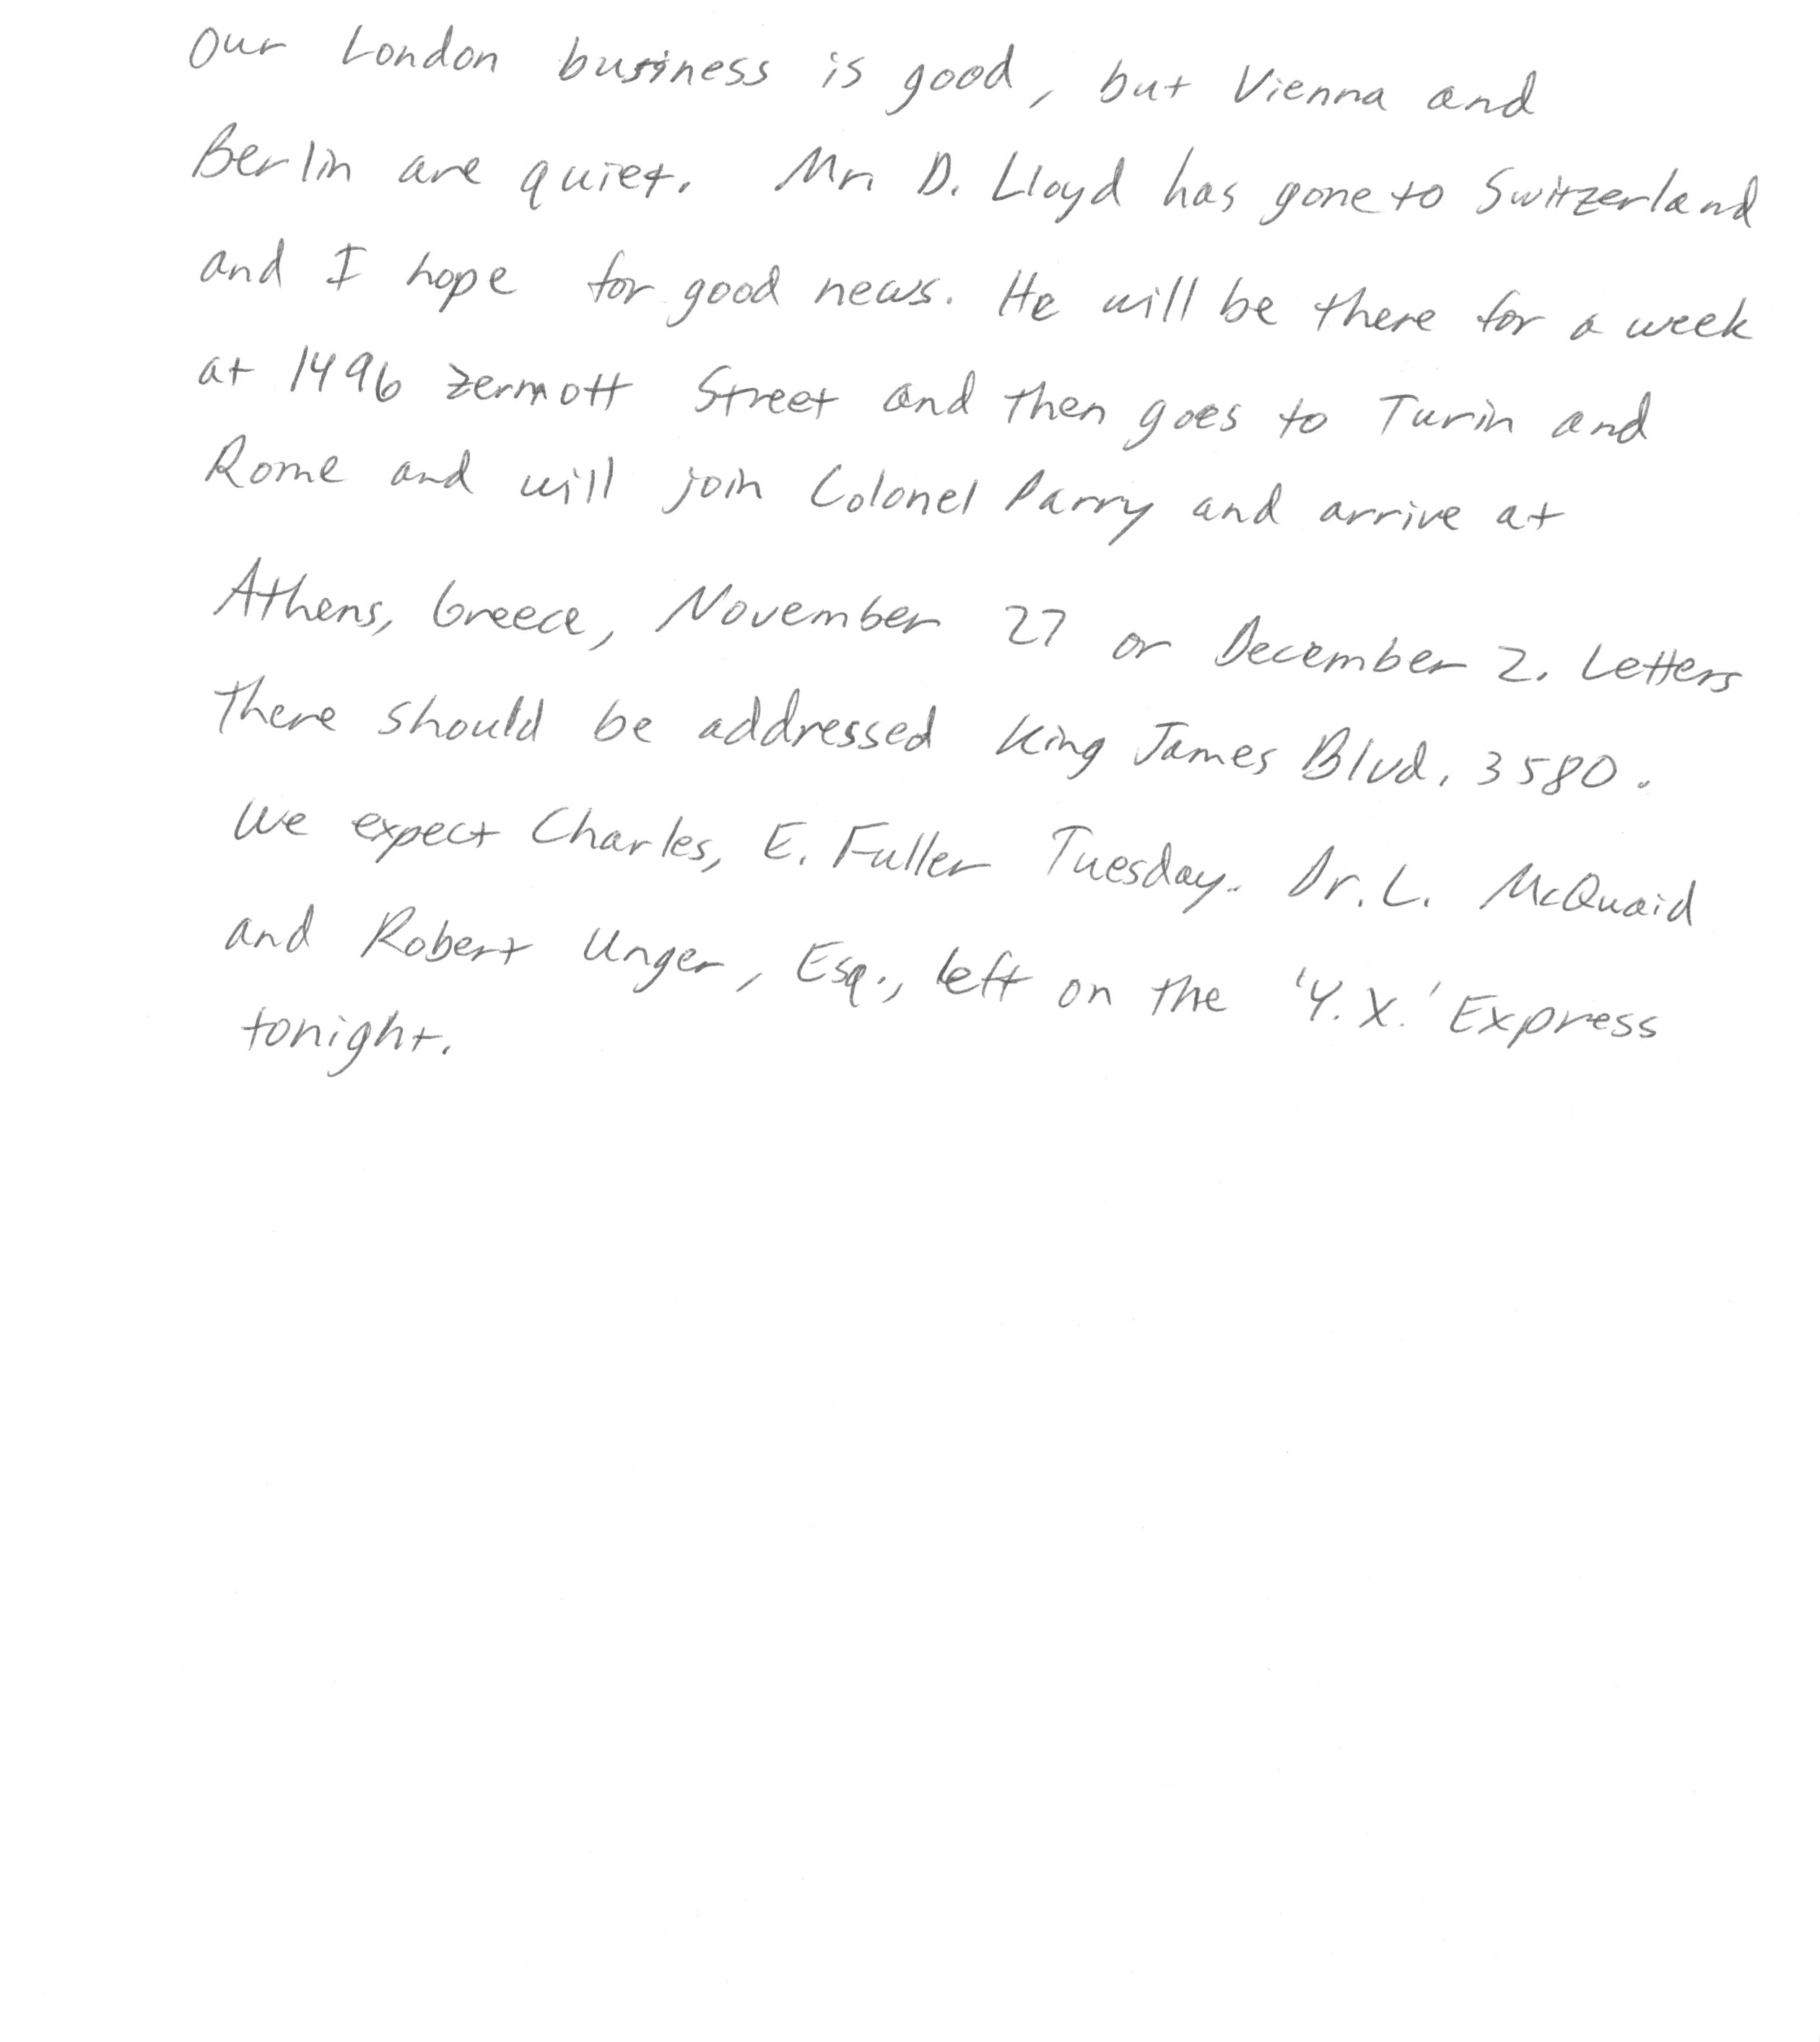 Our London business is good, but Vienna and
Berlin are quiet. Mr. D. Lloyd has gone to Switzerland
and I hope for good news. He will be there for a week
at 1496 Zermott Street and then goes to Turin and
Rome and will join Colonel Parry and arrive at
Athens, Greece, November 27 or December 2. Letters
there should be addressed King James Blvd. 3580.
We expect Charles, E. Fuller Tuesday. Dr. L. McQuaid
and Robert Unger, Esq., left on the 'Y.X.' Express
tonight.